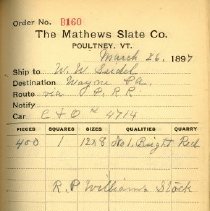 Order No. B160
The Mathews Slate Co.
POULTNEY, VT.
March 26, 1897
Ship to W. W. Siedel
Destination Wayne Pa.
Route via P. R R
Notify
Car C & O 4714
PIECES SQUARES SIZES QUALITIES QUARRY
400 1 12x8 No 1 Bright Red
R. P. Williams Stock